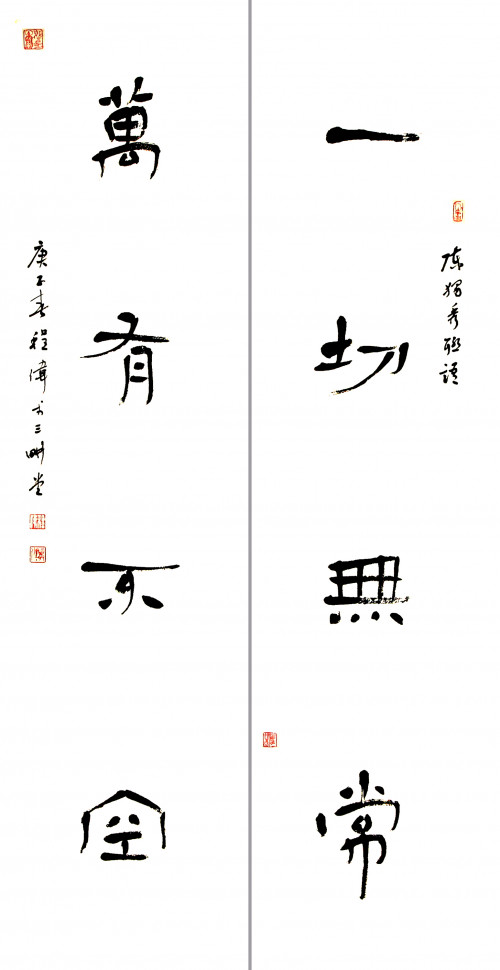 陳獨秀聯語
一切無常
萬有不空
庚子春程偉於三畊堂